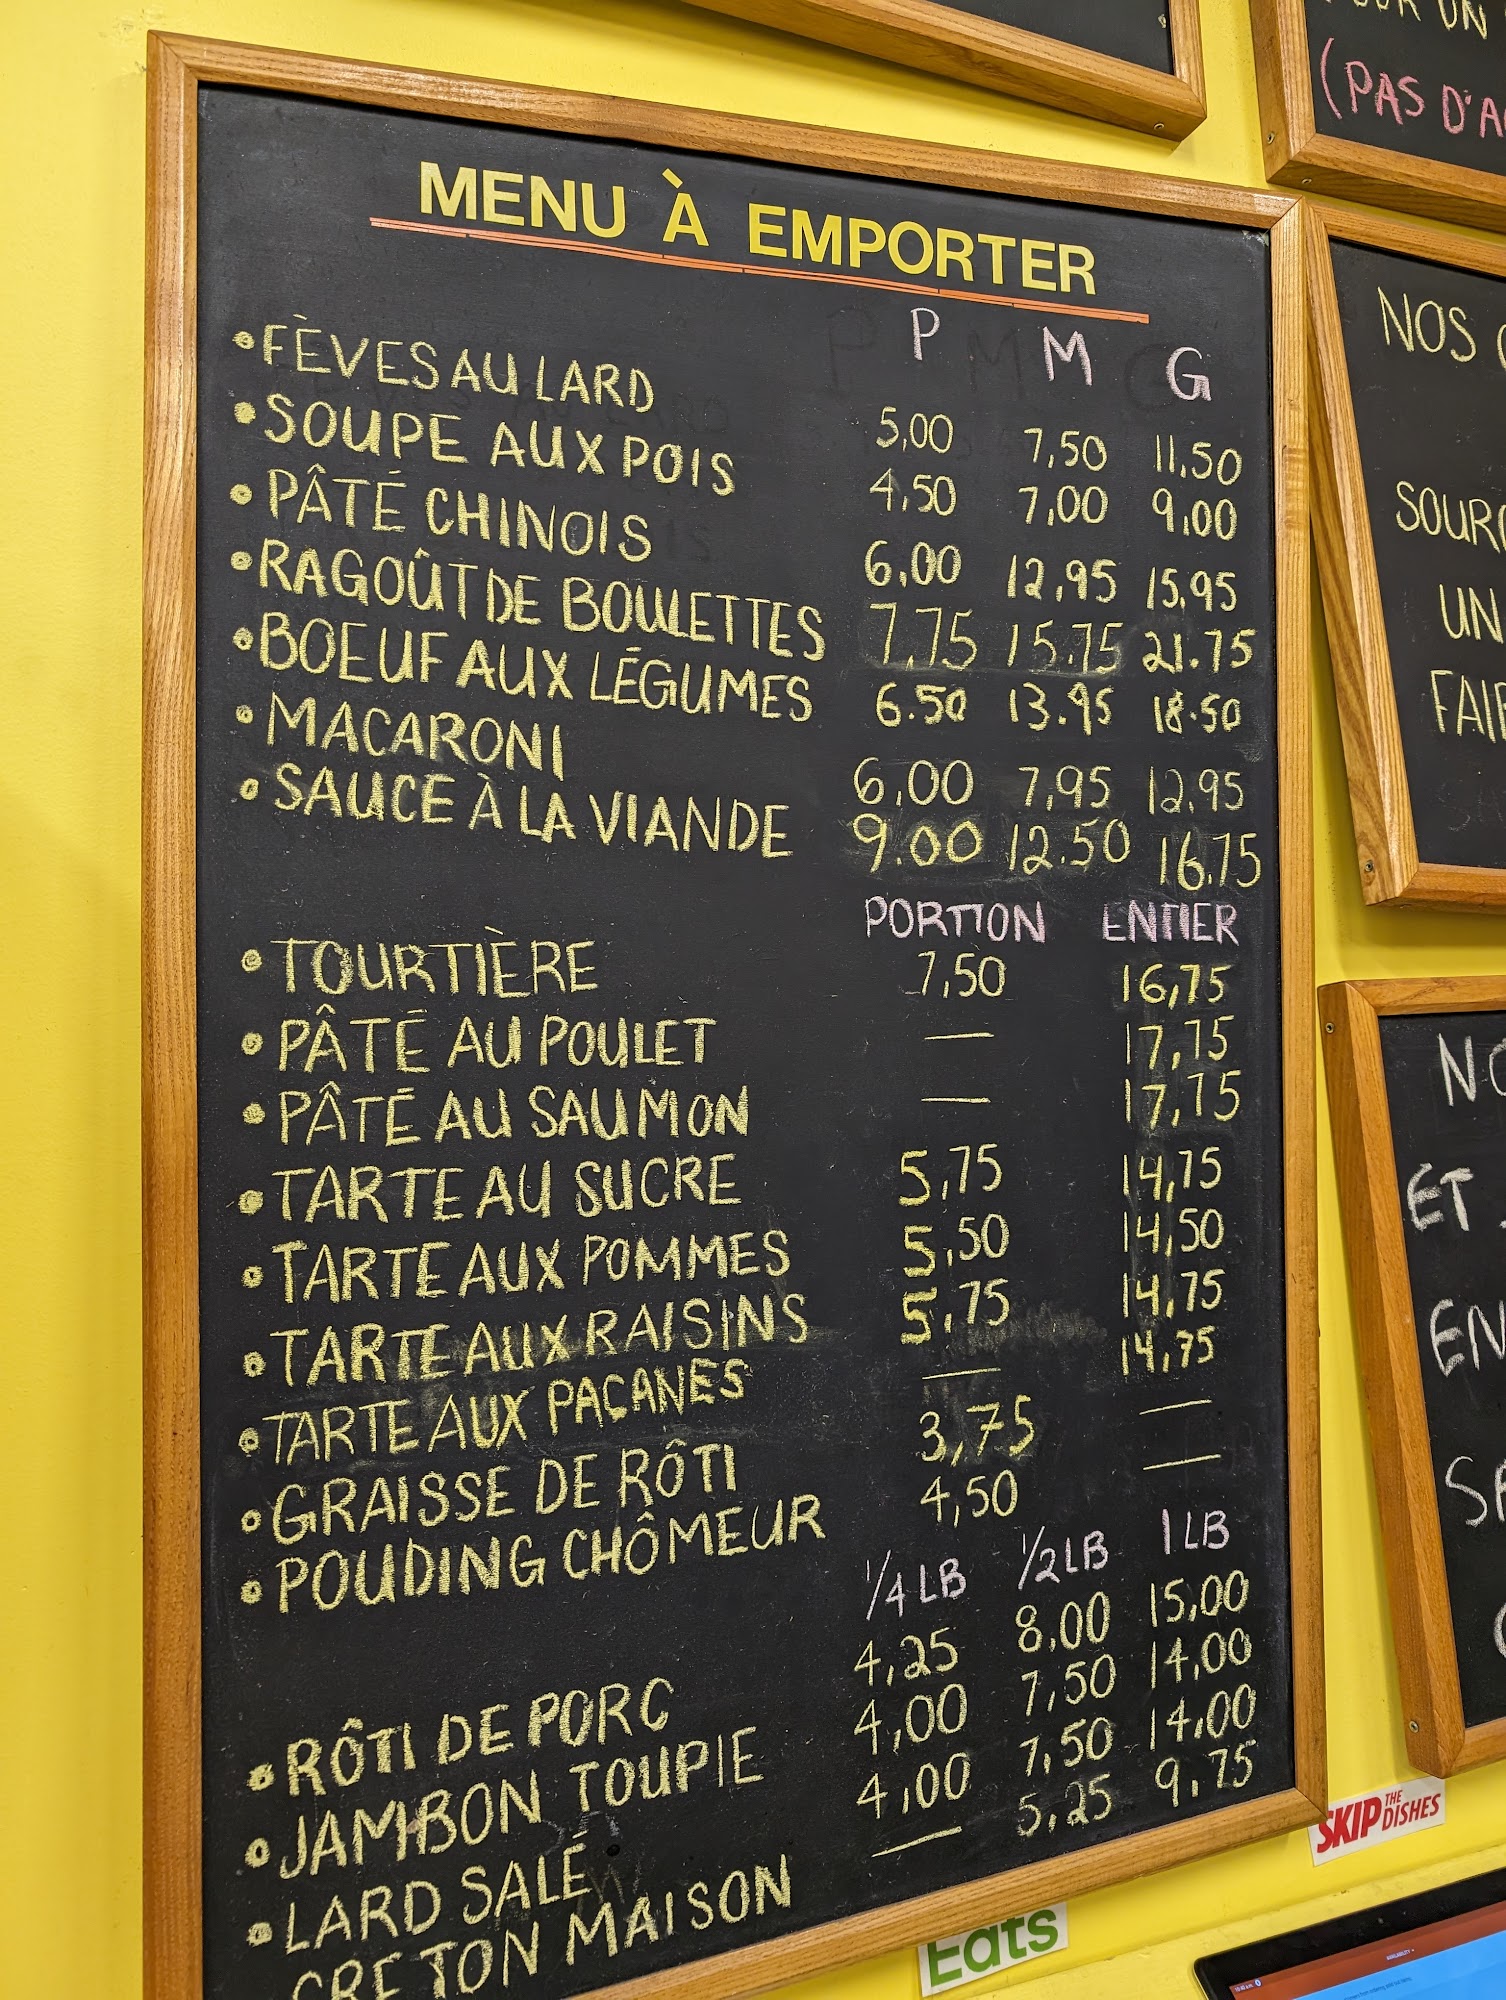 MENU À EMPORTER
P M G
• FÈVES AU LARD 5,00 7,50 11,50
• SOUPE AUX POIS 4,50 7,00 9,00
• PÂTÉ CHINOIS 6,00 12,95 15,95
• RAGOÛT DE BOULETTES 7,75 15.75 21.75
• BOEUF AUX LÉGUMES 6.50 13.95 18.50
• MACARONI 6,00 7,95 12,95
• SAUCE À LA VIANDE 9.00 12.50 16,75
PORTION ENTIER
• TOURTIÈRE 7,50 16,75
• PÂTÉ AU POULET — 17,75
• PÂTÉ AU SAUMON — 17,75
• TARTE AU SUCRE 5,75 14,75
• TARTE AUX POMMES 5,50 14,50
• TARTE AUX RAISINS 5,75 14,75
• TARTE AUX PAÇANES — 14,75
• GRAISSE DE RÔTI 3,75 —
• POUDING CHÔMEUR 4,50 —
1/4 LB 1/2 LB 1 LB
• RÔTI DE PORC 4,25 8,00 15,00
• JAMBON TOUPIE 4,00 7,50 14,00
• LARD SALÉ 4,00 7,50 14,00
CRETON MAISON — 5,25 9,75
UN
(PAS D'A
NOS
SOUR
UN
FAI
ET
EN
SKIP THE DISHES
Eats